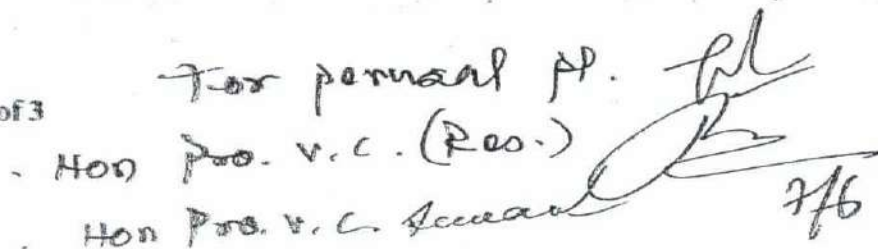 For perusal pl.
of 3
. Hon Pro. V.C. (Res.)
. Hon Pro. V.C.
7/6